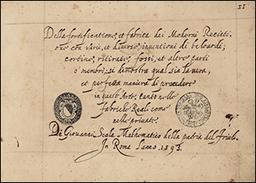 Delle fortificationi, et fabrica dei Moderni Recinti
con varii, et diversi inventioni di beloardi,
cortine, ritirate, fossi, et altre parti
e membri, si dimostra qual sia la vera,
et perfetta maniera di procedere
in questa Arte, tanto nelle
fabriche Reali come
nelle private.
Di Giovanni Scala Mathematico della patria del Friuli.
In Roma l'anno 1593.